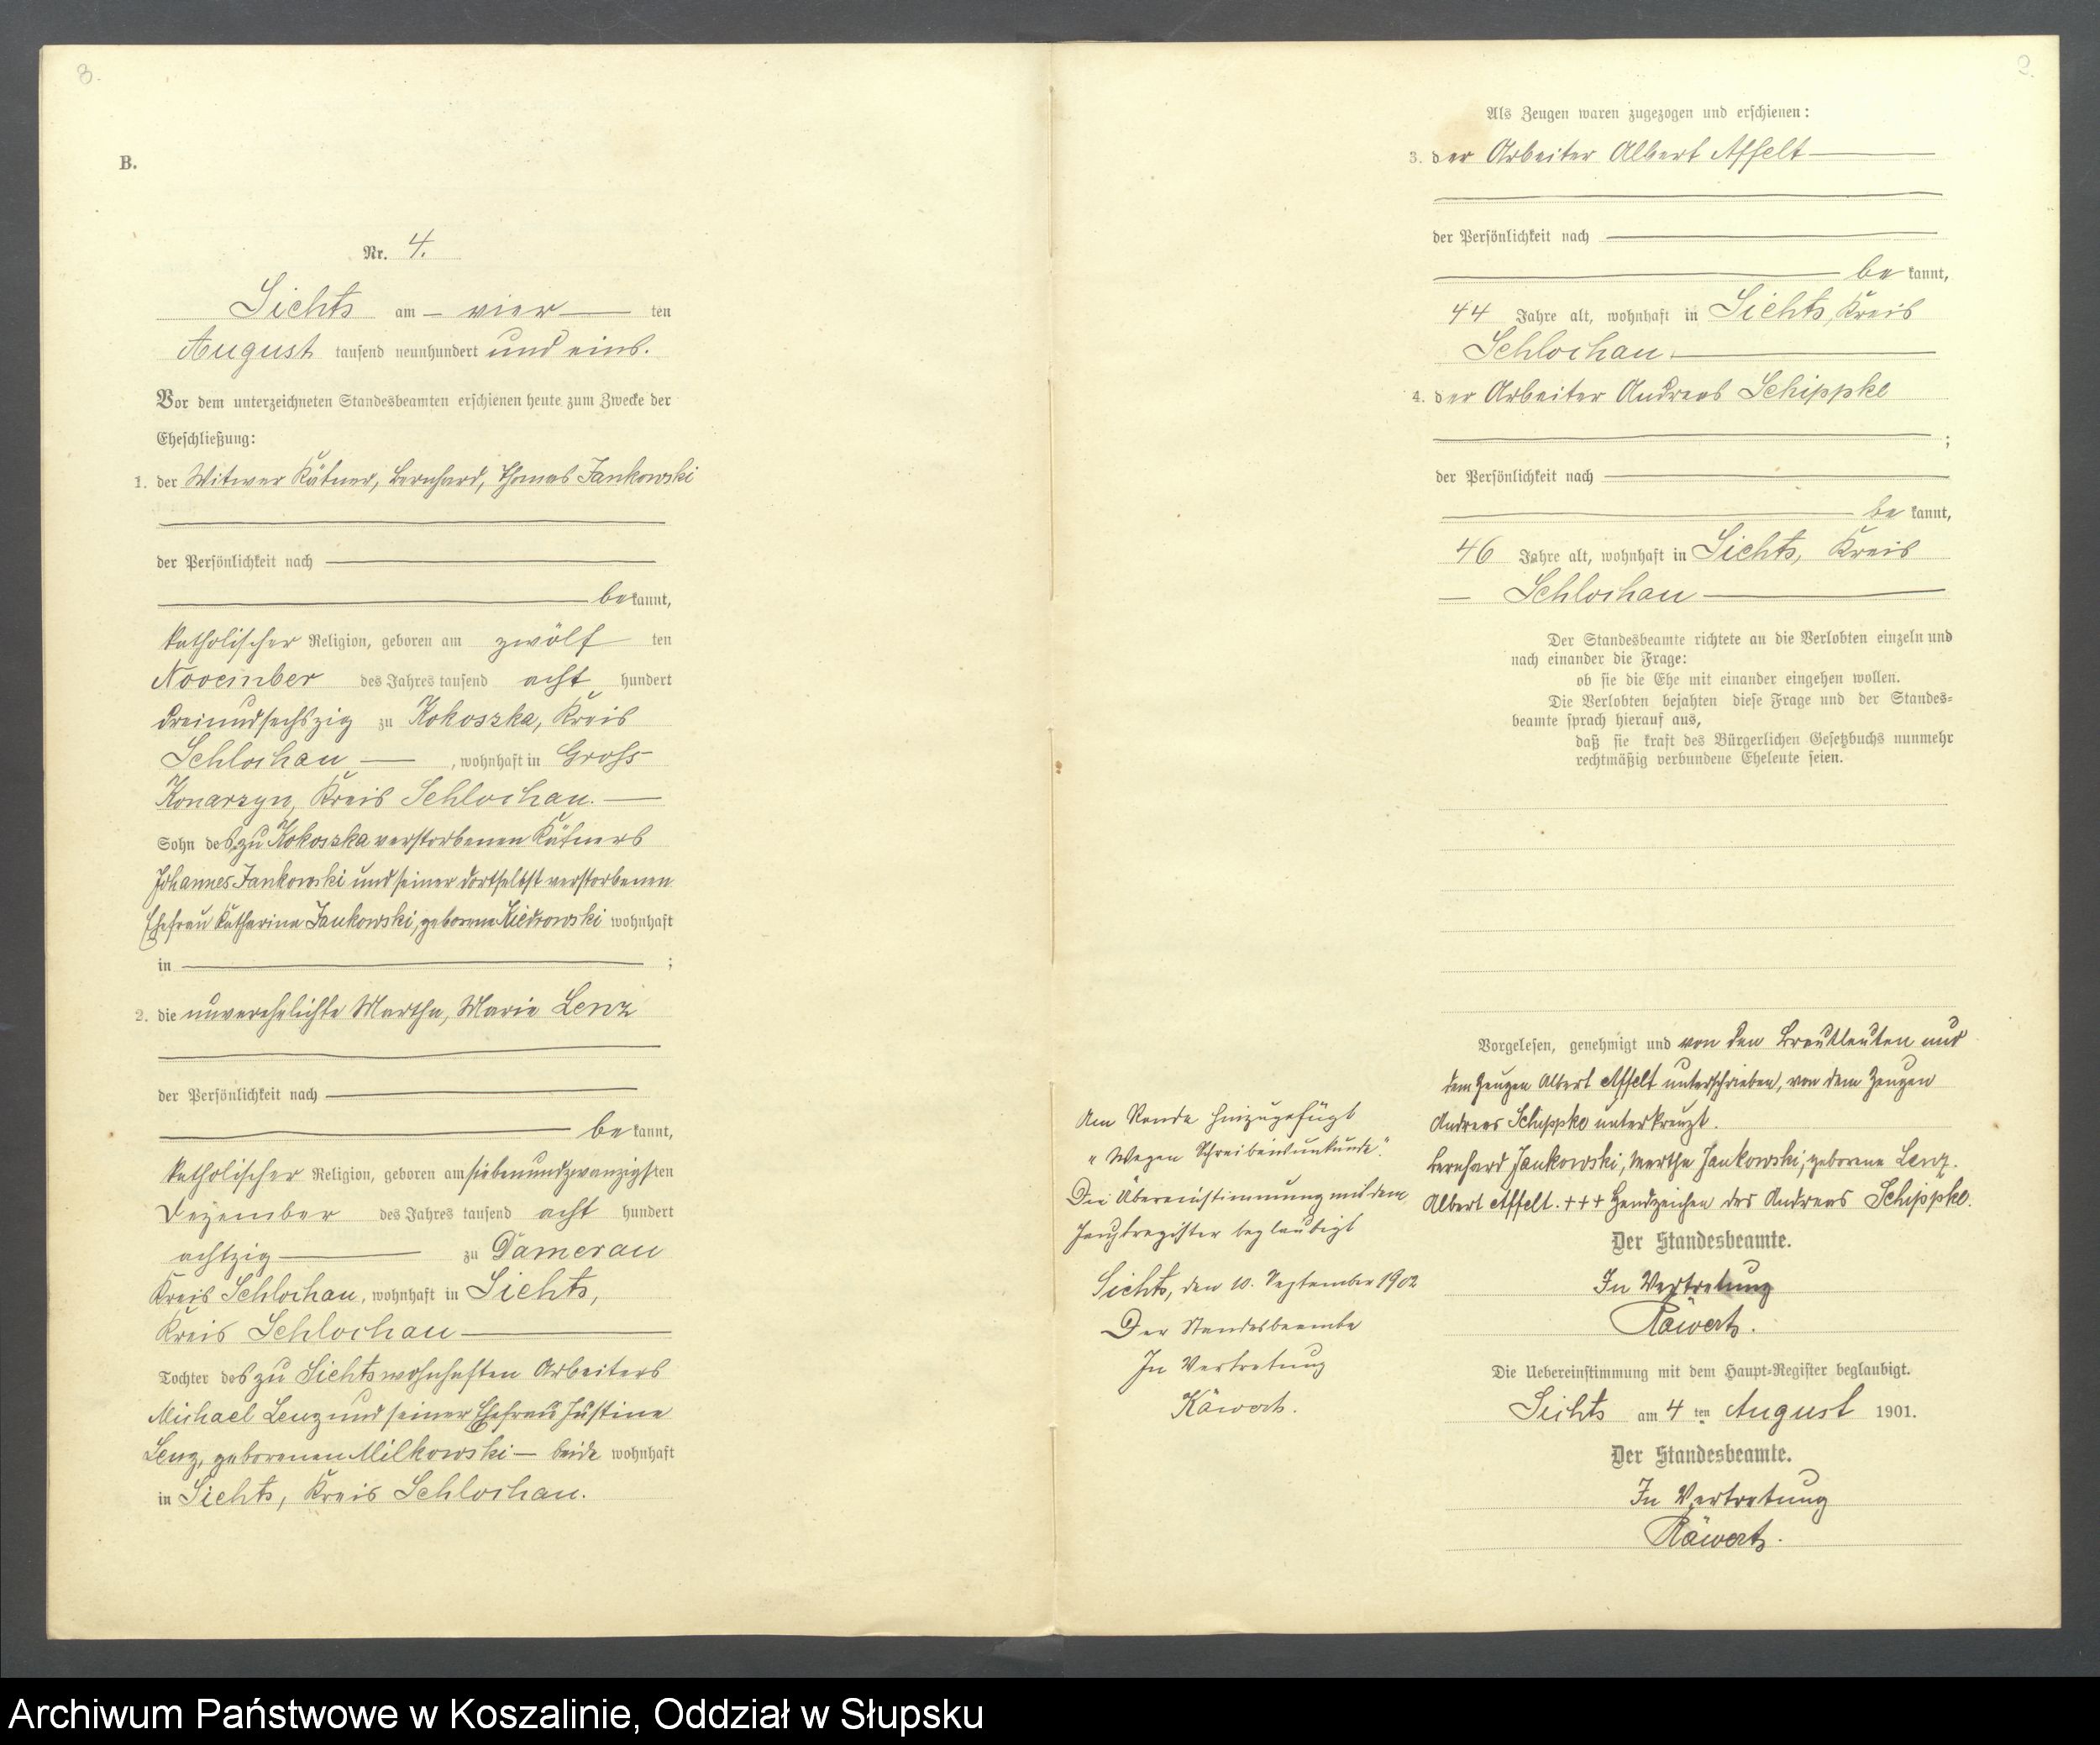 3.
B.
Nr. 4.
Sichts am vier ten
August tausend neunhundert und eins.
Vor dem unterzeichneten Standesbeamten erschienen heute zum Zwecke der
Eheschließung:
1. der Witwer Kätner, Bernhard, Thomas Jankowski
der Persönlichkeit nach
be kannt,
katholischer Religion, geboren am zwölf ten
November des Jahres tausend acht hundert
dreiundsechszig zu Kokoszka, Kreis
Schlochau, wohnhaft in Groß
Konarzyn, Kreis Schlochau.
Sohn des zu Kokoszka verstorbenen Kätners
Johannes Jankowski und seiner dortselbst verstorbenen
Ehefrau Katharina Jankowski, geborene Kiedrowski wohnhaft
in ;
2. die unverehelichte Martha, Marie Lenz
der Persönlichkeit nach
be kannt,
katholischer Religion, geboren am siebenundzwanzigsten
Dezember des Jahres tausend acht hundert
achtzig zu Damerau
Kreis Schlochau, wohnhaft in Sichts,
Kreis Schlochau
Tochter des zu Sichts wohnhaften Arbeiters
Michael Lenz und seiner Ehefrau Justine
Lenz, geborenen Milkowski — beide wohnhaft
in Sichts, Kreis Schlochau.
Als Zeugen waren zugezogen und erschienen:
3. der Arbeiter Albert Affelt
der Persönlichkeit nach
be kannt,
44 Jahre alt, wohnhaft in Sichts, Kreis
Schlochau.
4. der Arbeiter Andreas Schippke
;
der Persönlichkeit nach
be kannt,
46 Jahre alt, wohnhaft in Sichts, Kreis
Schlochau
Der Standesbeamte richtete an die Verlobten einzeln und
nach einander die Frage:
ob sie die Ehe mit einander eingehen wollen.
Die Verlobten bejahten diese Frage und der Standes-
beamte sprach hierauf aus,
daß sie kraft des Bürgerlichen Gesetzbuchs nunmehr
rechtmäßig verbundene Eheleute seien.
Vorgelesen, genehmigt und von den Brautleuten und
dem Zeugen Albert Affelt unterschrieben, von dem Zeugen
Andreas Schippke unterkreuzt.
Bernhard Jankowski, Martha Jankowski, geborene Lenz.
Albert Affelt. +++ Handzeichen des Andreas Schippke.
Der Standesbeamte.
In Vertretung
Die Uebereinstimmung mit dem Haupt-Register beglaubigt.
Sichts am 4 ten August 1901.
Der Standesbeamte.
In Vertretung
Am Rande hinzugefügt
"Wegen Schreibensunkunde".
Die Übereinstimmung mit dem
Hauptregister beglaubigt
Sichts, den 10. September 1902
Der Standesbeamte
In Vertretung
Archiwum Państwowe w Koszalinie, Oddział w Słupsku